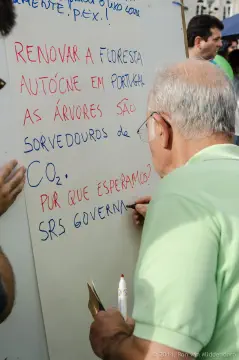 MENTE!
PEX!
RENOVAR A FLORESTA
AUTÓCNE EM PORTUGAL
AS ÁRVORES SÃO
SORVEDOUROS de
CO2.
POR QUE ESPERAMOS?
SRS GOVERNA